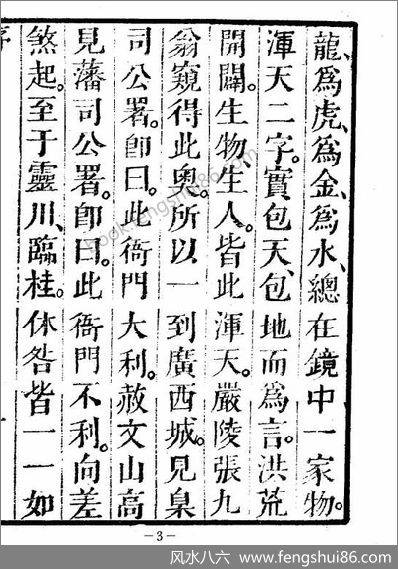 龍、為虎、為金、為水、總在鏡中一家物。
渾天二字。實包天、包地而為言。洪荒
開闢。生物、生人。皆此渾天。嚴陵張九
翁窺得此奧。所以一到廣西城。見臬
司公署。即曰。此衙門大利。赦文山高
見藩司公署。即曰。此衙門不利。向差
煞起。至于靈川、臨桂。休咎皆一一如
序
一
book.fengshui86.com
—3—
风水八六 www.fengshui86.com